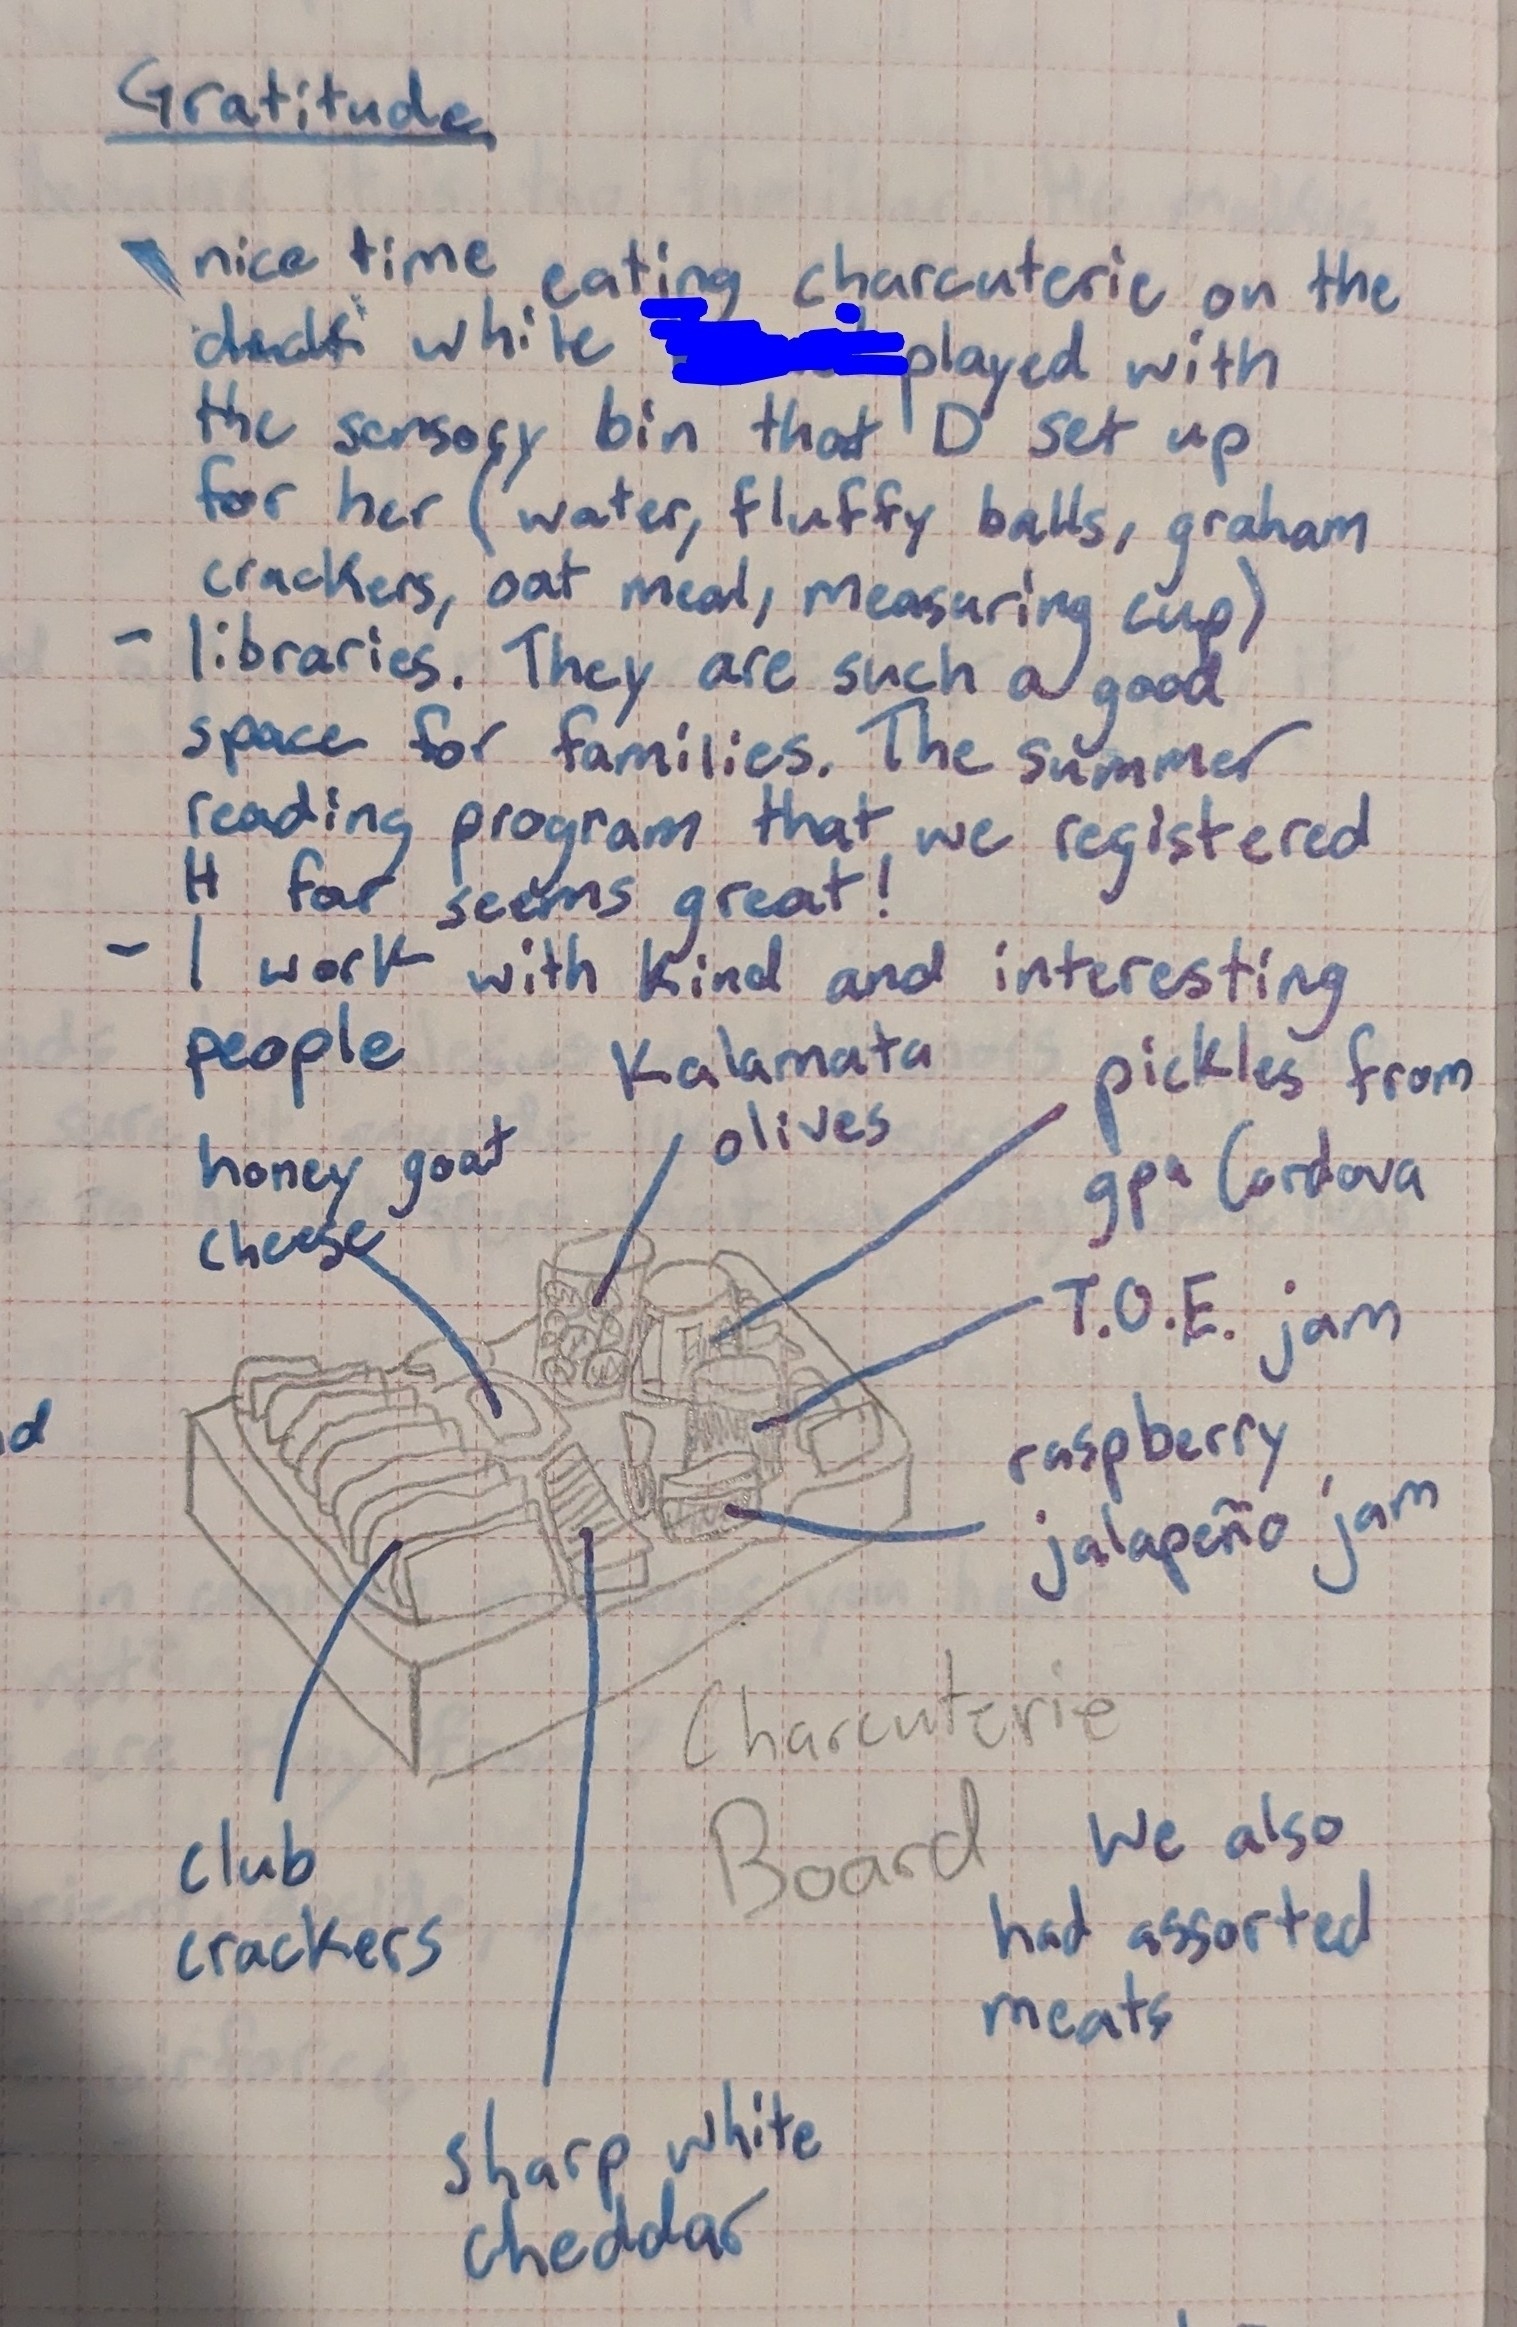 Gratitude
- nice time eating charcuterie on the
deck while played with
the sensory bin that D set up
for her (water, fluffy balls, graham
crackers, oat meal, measuring cup)
- libraries. They are such a good
space for families. The summer
reading program that we registered
H for seems great!
- I work with kind and interesting
people
Kalamata
olives
pickles from
gpa Cordova
honey goat
cheese
T.O.E. jam
raspberry
jalapeño jam
Charcuterie
Board
club
crackers
We also
had assorted
meats
sharp white
cheddar